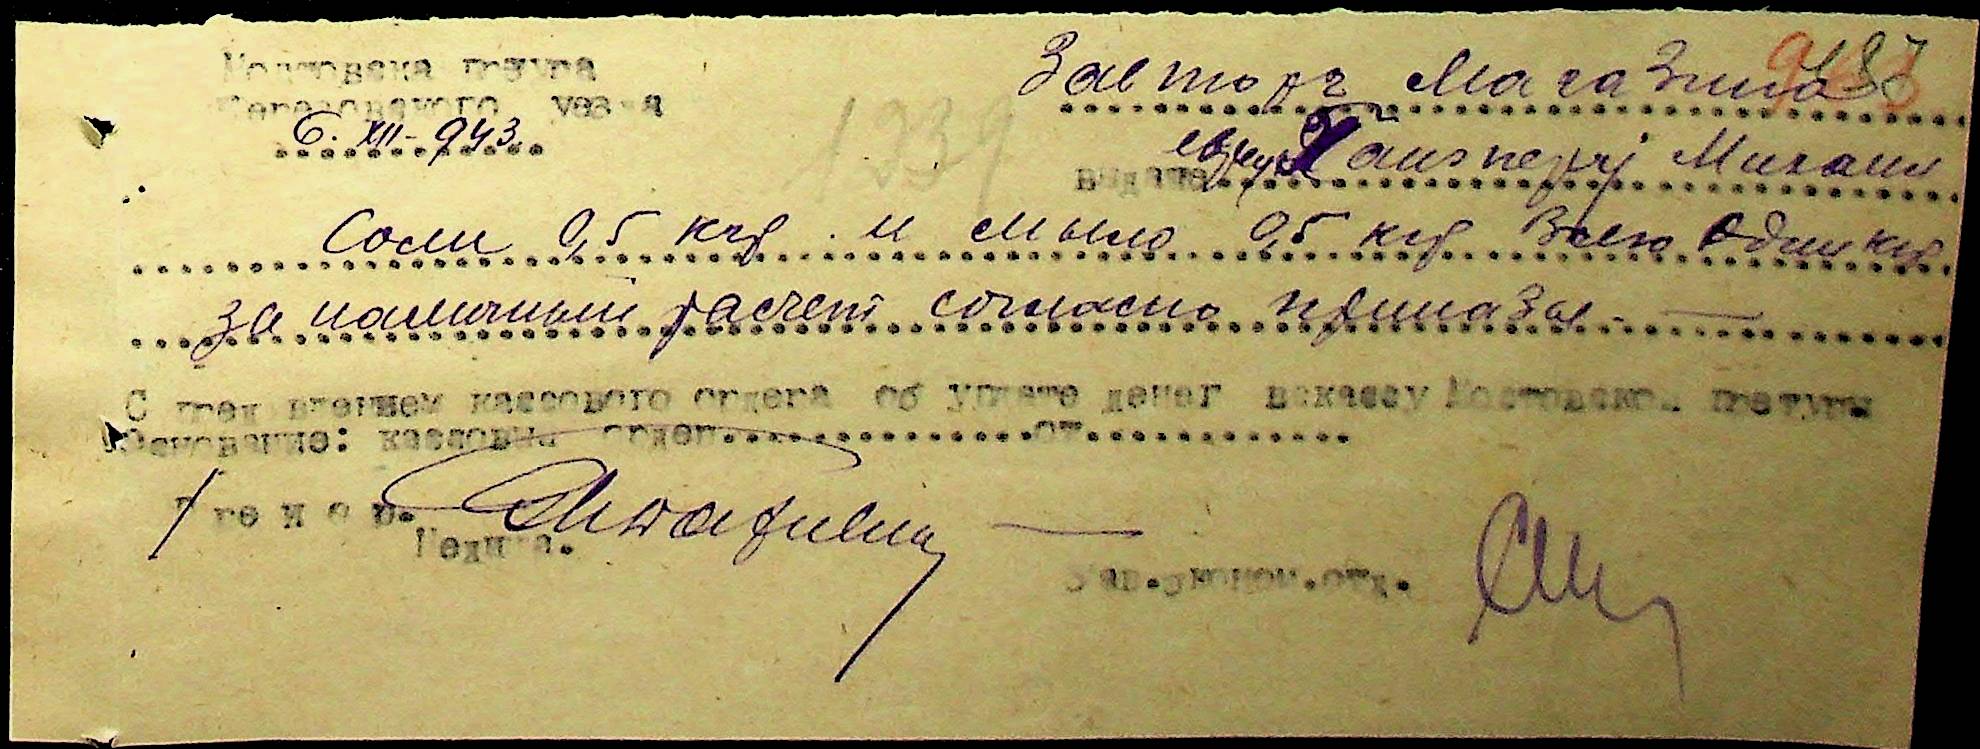 Мостовска претура
Березовского уезда
6. XII - 943.
1339
Завторг Магазина
выдаче еврею Гайзнерг Михаил
Соли 0,5 кгр. и мыло 0,5 кгр Всего один кгр.
за наличный расчет согласно приказа. —
С пред"явлением кассового ордера об уплате денег вкассу Мостовской претуры
Основание: кассовый ордер..................от..............
Претор.
Зав.эконом.отд.